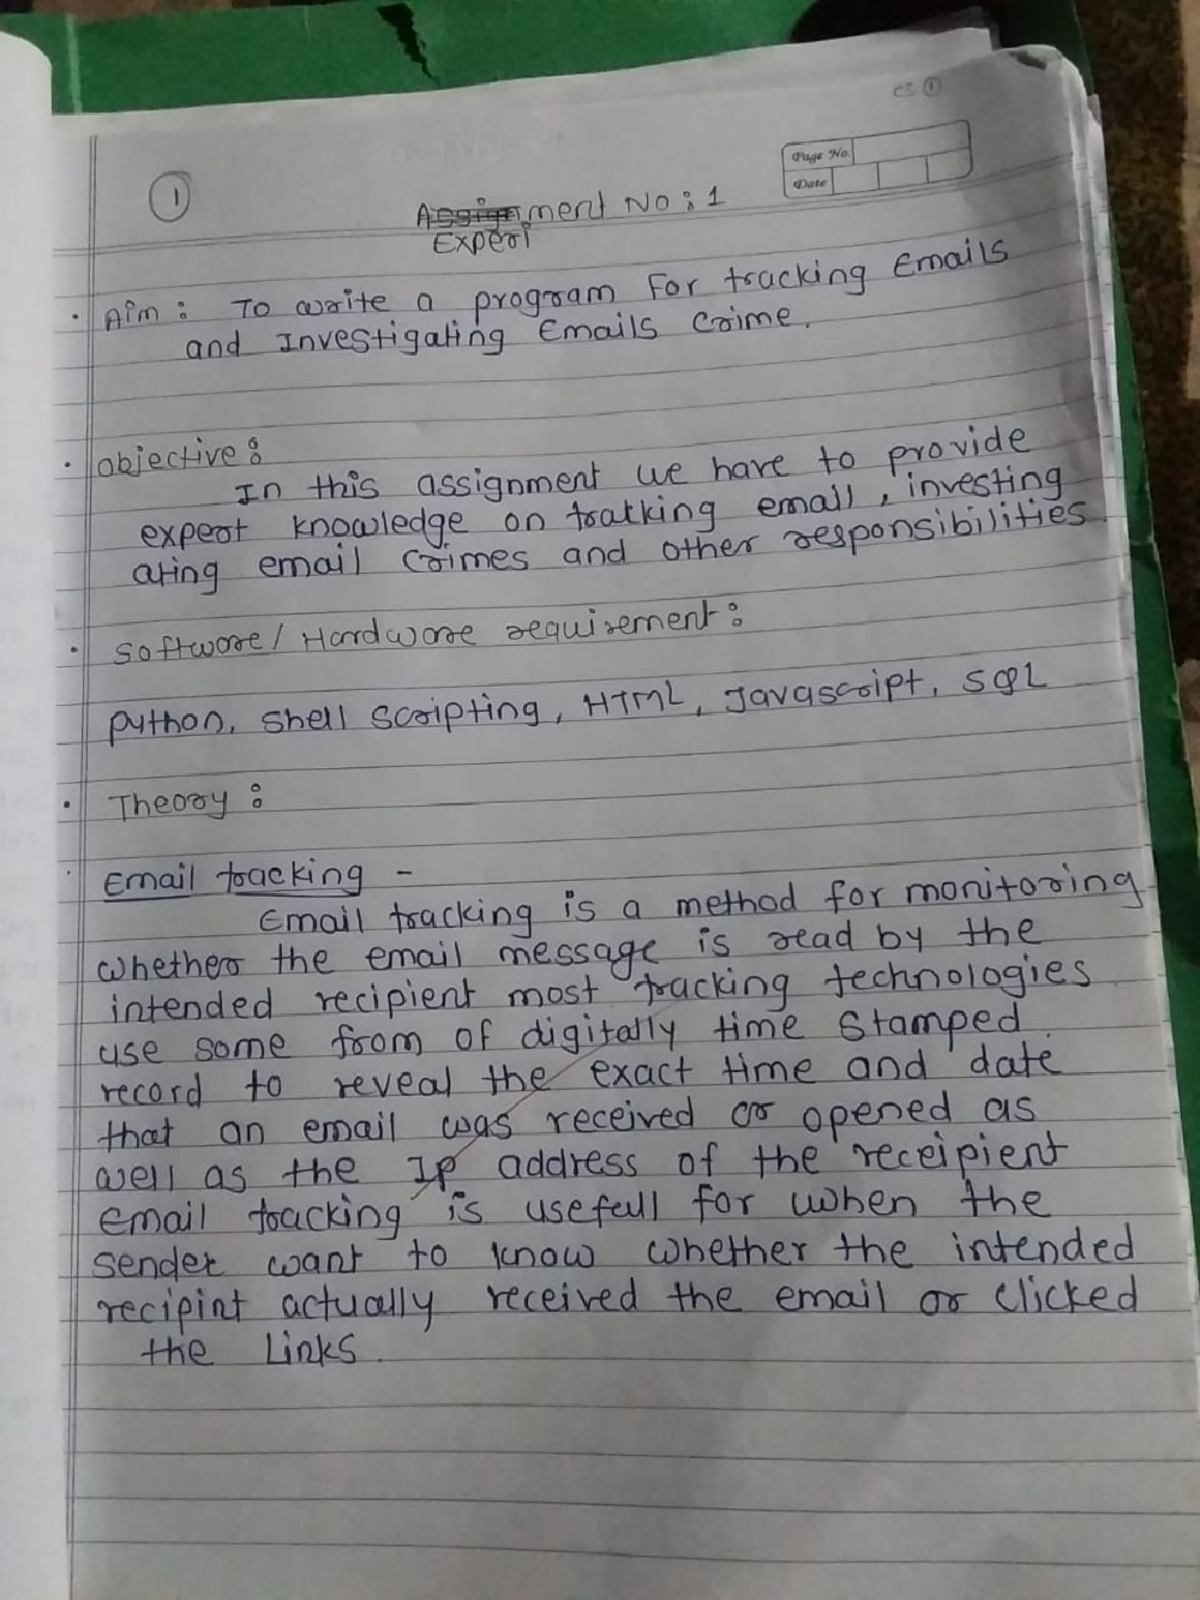 CS ①
Page No.
Date
1
Assignment No : 1
Experi
• Aim : To write a program For tracking Emails
and Investigating Emails Crime.
• objective :
In this assignment we have to provide
expert knowledge on tratking email, investing
ating email crimes and other responsibilities
• Software / Hardware requirement :
python, Shell scripting, HTML, Javascript, SQL
• Theory :
Email tracking -
Email tracking is a method for monitoring
whether the email message is read by the
intended recipient most tracking technologies
use some from of digitally time stamped.
record to reveal the exact time and date
that an email was received or opened as
well as the IP address of the receipient
email tracking is usefull for when the
sender want to know whether the intended
recipint actually received the email or clicked
the Links.